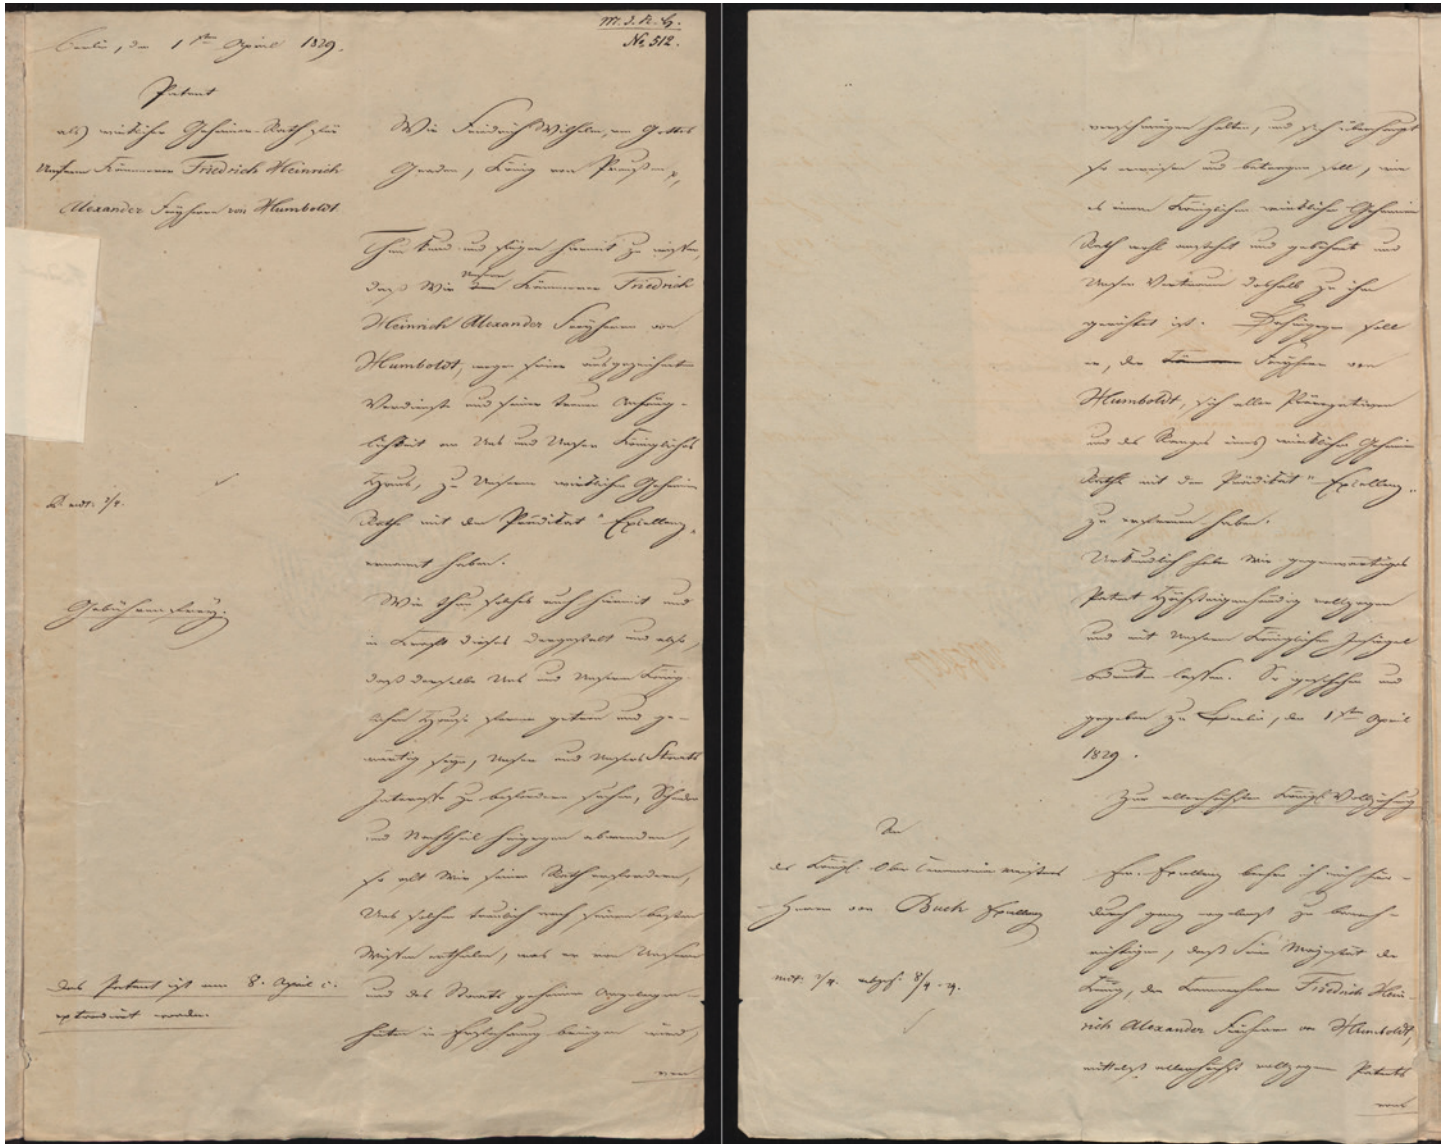 M. d. K. H.
No. 512.
Berlin, den 1sten April 1829.
Patent
als wirklicher Geheimer Rath für
Unsern Kammerherrn Friedrich Heinrich
Alexander Freyherrn von Humboldt.
Gebührenfrey.
Das Patent ist am 8. April c.
extradirt worden.
Wir Friedrich Wilhelm, von Gottes
Gnaden, König von Preußen p.
Thun kund und fügen hiermit zu wissen,
daß Wir Unsern Kammerherrn Friedrich
Heinrich Alexander Freyherrn von
Humboldt, wegen seiner ausgezeichneten
Verdienste und seiner treuen Anhäng-
lichkeit an Uns und Unser Königliches
Haus, zu Unserm wirklichen Geheimen
Rath mit dem Prädikat "Excellenz"
ernannt haben.
Wir thun solches auch hiermit und
in Kraft dieses dergestalt und also,
daß derselbe Uns und Unserm König-
lichen Hause ferner getreu und ge-
wärtig seyn, Unser und Unsers Staats
Interesse zu befördern suchen, Schaden
und Nachtheil hingegen abwenden,
so oft Wir seinen Rath erfordern,
Uns solchen treulich nach seinem besten
Wissen ertheilen, was er von Unsern
und des Staats geheimen Angelegen-
heiten in Erfahrung bringen wird,
ver-
verschwiegen halten, und sich überhaupt
so erweisen und betragen soll, wie
es einem Königlichen wirklichen Geheimen
Rath wohl ansteht und gebührt und
Unser Vertrauen deshalb zu ihm
gerichtet ist. Dahingegen soll
er, der Freyherr von
Humboldt, sich aller Prärogativen
und des Ranges eines wirklichen Geheimen
Raths mit dem Prädikat "Excellenz"
zu erfreuen haben.
Urkundlich haben Wir gegenwärtiges
Patent Höchsteigenhändig vollzogen
und mit Unserm Königlichen Insiegel
bedrucken lassen. So geschehen und
gegeben zu Berlin, den 1sten April
1829.
Zur allerhöchsten Königl. Vollziehung
An
des Königl. Ober Ceremonienmeisters
Herrn von Buch Excellenz
Ew. Excellenz beehre ich mich hier-
durch ganz ergebenst zu benach-
richtigen, daß Seine Majestät der
König, den Kammerherrn Friedrich Hein-
rich Alexander Freyherrn von Humboldt,
mittelst allerhöchst vollzogenen Patents
vom